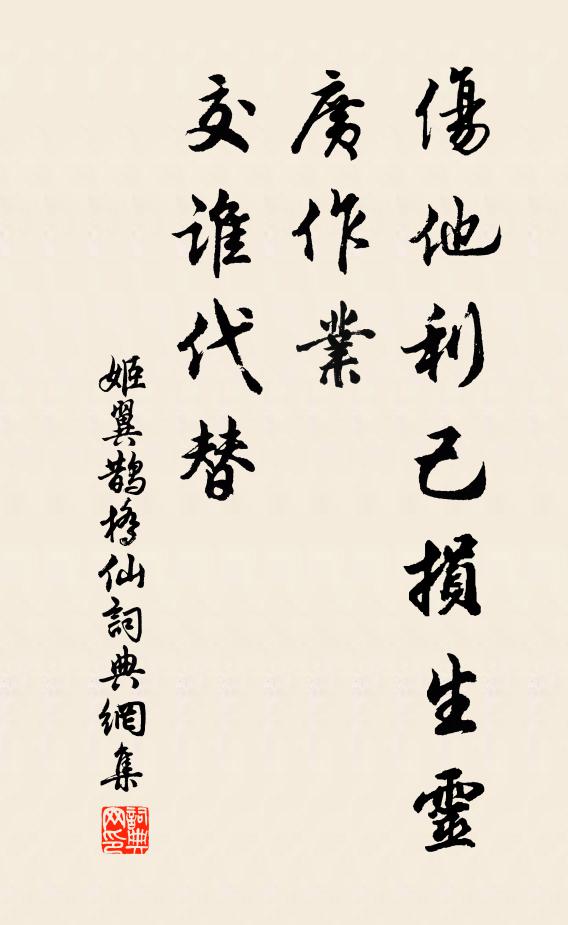 傷他利己損生靈
廣作業
交誰代替
姬翼鵲橋仙詞典網集
詞典网印